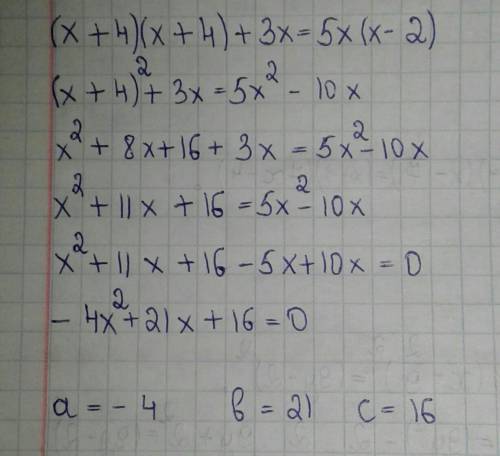 (x + 4)(x + 4) + 3x = 5x(x - 2)
(x + 4)² + 3x = 5x² - 10x
x² + 8x + 16 + 3x = 5x² - 10x
x² + 11x + 16 = 5x² - 10x
x² + 11x + 16 - 5x + 10x = 0
- 4x² + 21x + 16 = 0
a = - 4 в = 21 c = 16